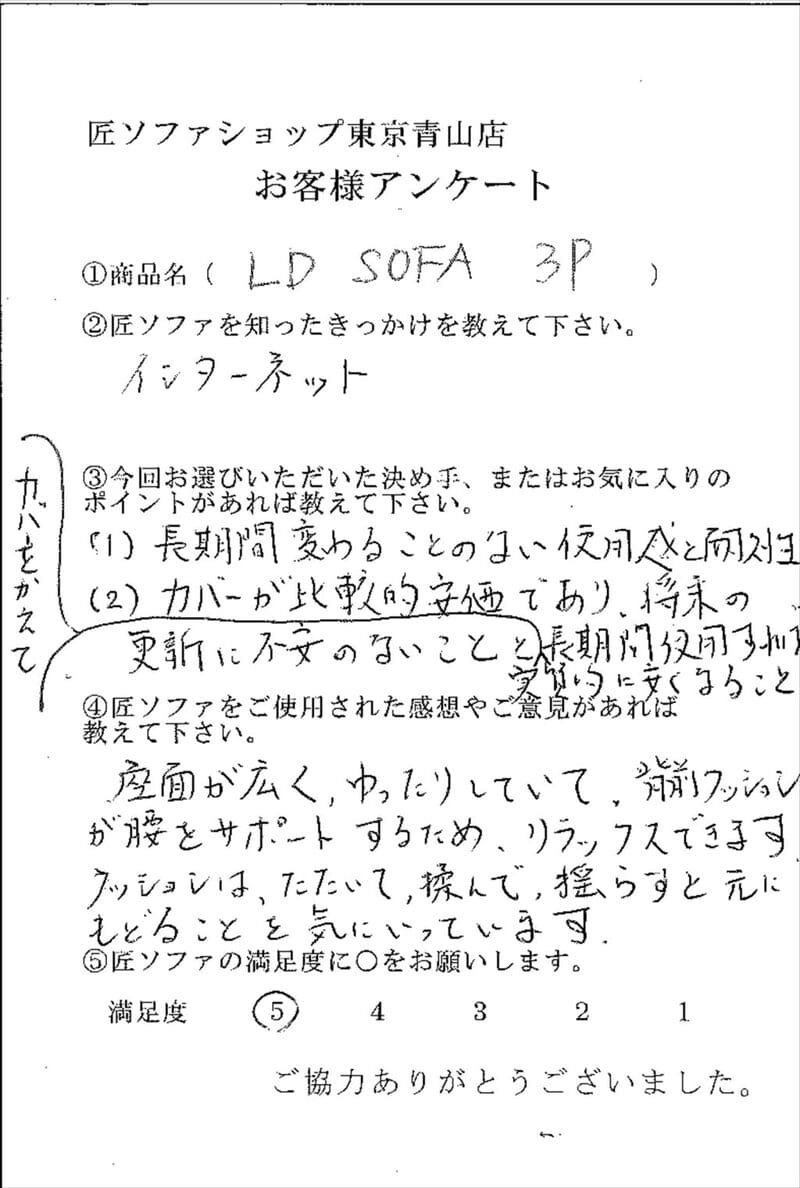 匠ソファショップ東京青山店
お客様アンケート
①商品名（ LD SOFA 3P ）
②匠ソファを知ったきっかけを教えて下さい。
インターネット
③今回お選びいただいた決め手、またはお気に入りの
ポイントがあれば教えて下さい。
(1) 長期間変わることのない使用感と耐久性
(2) カバーが比較的安価であり、将来の
更新に不安のないことと
カバーをかえて
長期間使用すれば
実質的に安くなること
④匠ソファをご使用された感想やご意見があれば
教えて下さい。
座面が広く、ゆったりしていて、背前クッション
が腰をサポートするため、リラックスできます
クッションは、たたいて、揉んで、揺らすと元に
もどることを気にいっています.
⑤匠ソファの満足度に○をお願いします。
満足度 5 4 3 2 1
ご協力ありがとうございました。